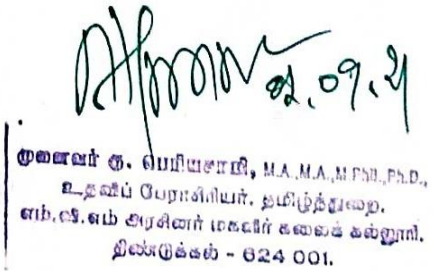 முனைவர் கு. பெரியசாமி, M.A.,M.A.,M.Phil.,Ph.D.,
உதவிப் பேராசிரியர், தமிழ்த்துறை,
எம்.வி.எம் அரசினர் மகளிர் கலைக் கல்லூரி,
திண்டுக்கல் - 624 001.